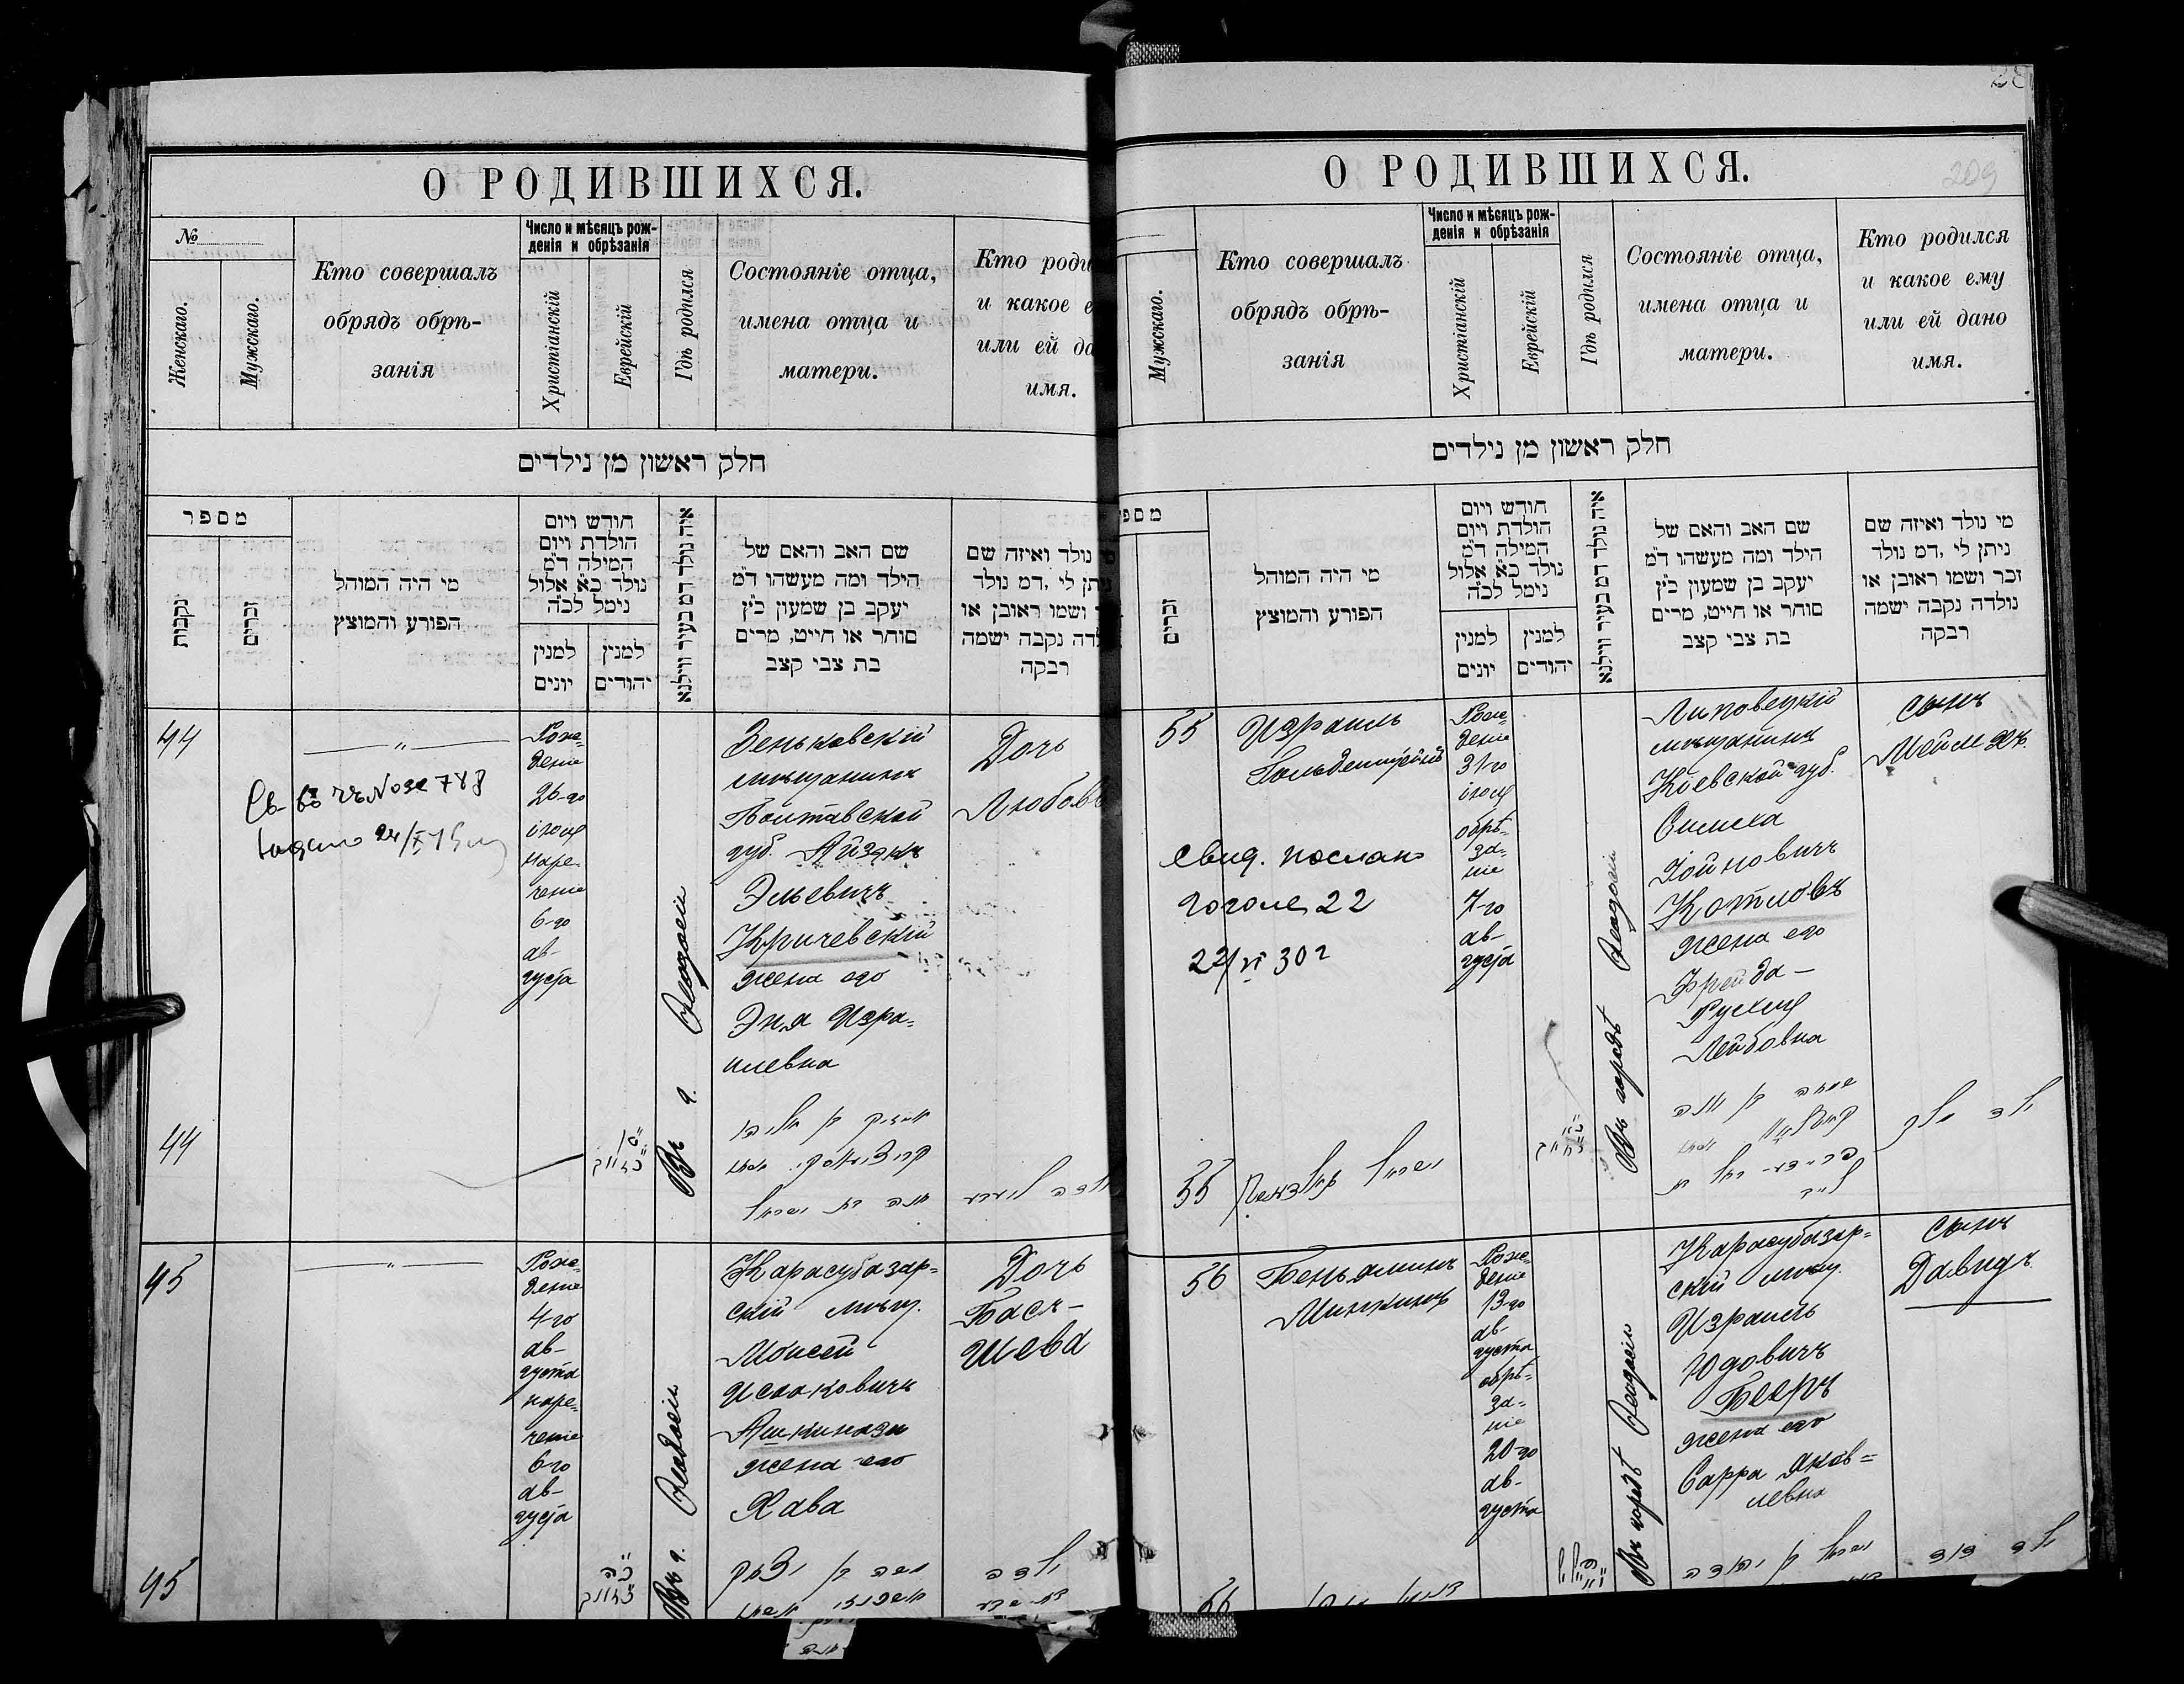 О РОДИВШИХСЯ.
№
Женскаго.
Мужскаго.
Кто совершалъ
обрядъ обрѣ-
занія
Число и мѣсяцъ рож-
денія и обрѣзанія
Христіанскій
Еврейскій
Гдѣ родился
Состояніе отца,
имена отца и
матери.
Кто роди
и какое е
или ей да
имя.
חלק ראשון מן נילדים
מספר
נקבות
זכרים
מי היה המוהל
הפורע והמוצץ
חודש ויום
הולדת ויום
המילה ד״מ
נולד כ״א אלול
נימל לכ״ה
למנין
יונים
למנין
יהודים
איה נולד דמ בעיר ווילנא
שם האב והאם של
הילד ומה מעשהו ד״מ
יעקב בן שמעון כ״ץ
סוחר או חייט, מרים
בת צבי קצב
נולד ואיזה שם
ניתן לי, דמ נולד
ושמו ראובן או
נולדה נקבה ישמה
רבקה
44
— " —
Рож-
деніе
26-го
іюля
наре-
ченіе
6-го
ав-
густа
Въ г. Ѳеодосіи
Зеньковскій
мѣщанинъ
Полтавской
губ. Айзикъ
Эльевичъ
Кричевскій
жена его
Эня Изра-
илевна
Дочь
Любовь
44
45
— " —
Рож-
деніе
4-го
ав-
густа
наре-
ченіе
6-го
ав-
густа
Въ г. Ѳеодосіи
Карасубазар-
скій мѣщ.
Моисей
Исаковичъ
Ашкинази
жена его
Хава
Дочь
Бася-
Шева
45
28
О РОДИВШИХСЯ.
209
Мужскаго.
Кто совершалъ
обрядъ обрѣ-
занія
Число и мѣсяцъ рож-
денія и обрѣзанія
Христіанскій
Еврейскій
Гдѣ родился
Состояніе отца,
имена отца и
матери.
Кто родился
и какое ему
или ей дано
имя.
חלק ראשון מן נילדים
מספ
זכרים
מי היה המוהל
הפורע והמוצץ
חודש ויום
הולדת ויום
המילה ד״מ
נולד כ״א אלול
נימל לכ״ה
למנין
יונים
למנין
יהודים
איה נולד דמ בעיר ווילנא
שם האב והאם של
הילד ומה מעשהו ד״מ
יעקב בן שמעון כ״ץ
סוחר או חייט, מרים
בת צבי קצב
מי נולד ואיזה שם
ניתן לי, דמ נולד
זכר ושמו ראובן או
נולדה נקבה ישמה
רבקה
55
Израиль
Гольденштейнъ
Свид. послан
гоголя 22
22/VI 30 г
Рож-
деніе
31-го
іюля
обрѣ-
за-
ніе
7-го
ав-
густа
Въ городѣ Ѳеодосіи
Липовецкій
мѣщанинъ
Кіевской губ.
Симха
Іойновичъ
Котловъ
жена его
Фрейда-
Рухля
Лейбовна
сынъ
Мейлехъ
55
56
Беньяминъ
Минкинъ
Рож-
деніе
13-го
ав-
густа
обрѣ-
за-
ніе
20-го
ав-
густа
Въ городѣ Ѳеодосіи
Карасубазар-
скій мѣщ.
Израиль
Юдовичъ
Бееръ
жена его
Сарра Яков-
левна
сынъ
Давидъ
56